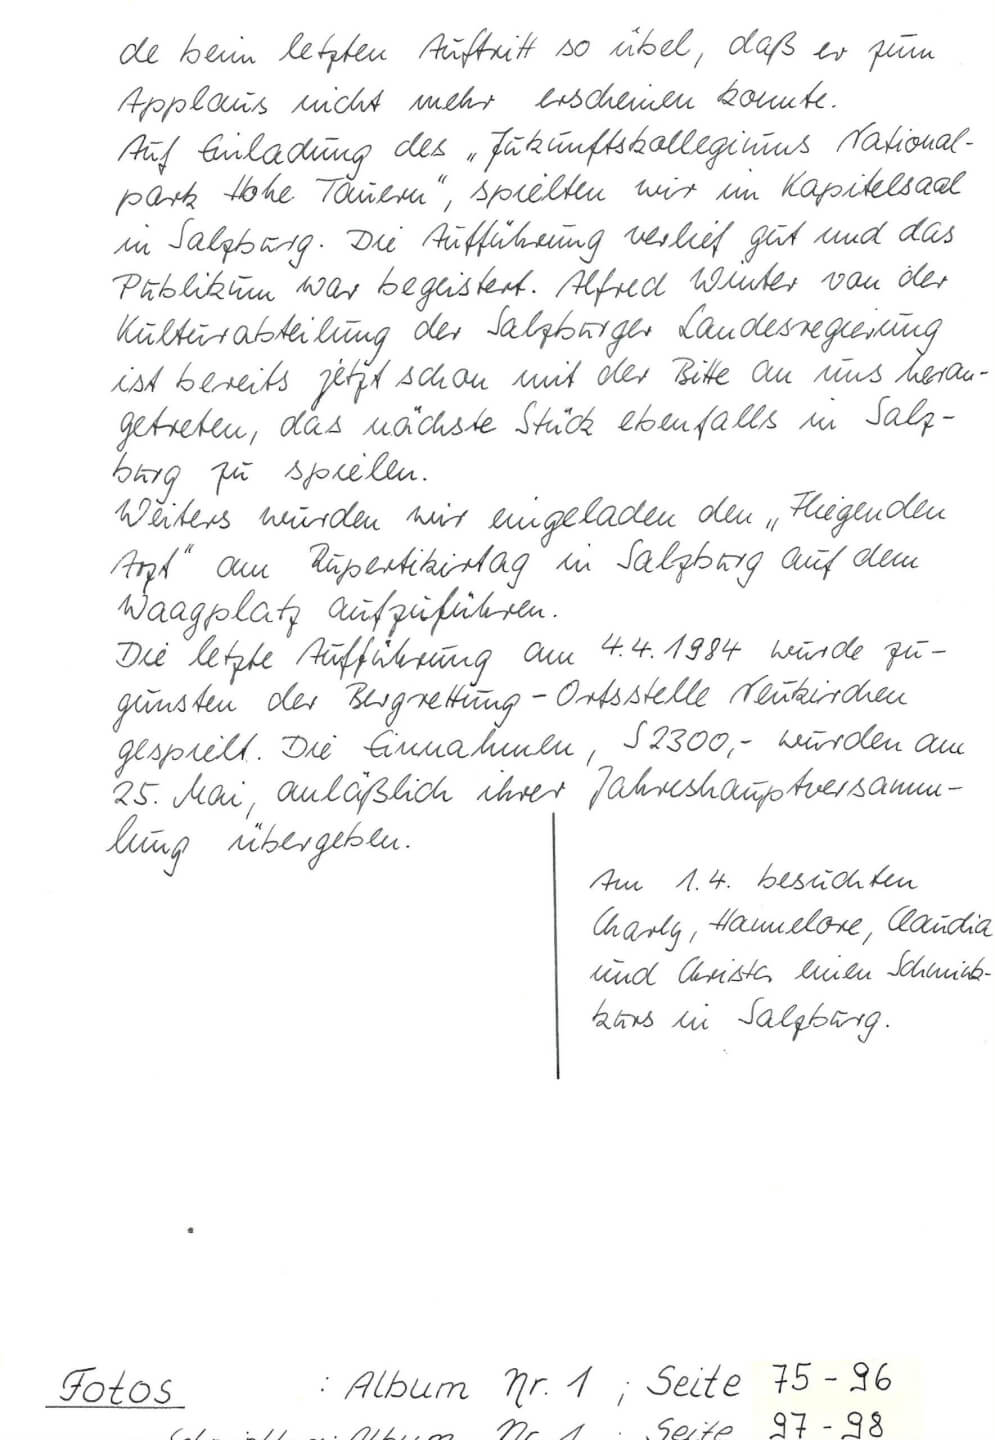 de beim letzten Auftritt so übel, daß er zum
Applaus nicht mehr erscheinen konnte.
Auf Einladung des „Zukunftskollegiums National-
park Hohe Tauern", spielten wir im Kapitelsaal
in Salzburg. Die Aufführung verlief gut und das
Publikum war begeistert. Alfred Winter von der
Kulturabteilung der Salzburger Landesregierung
ist bereits jetzt schon mit der Bitte an uns heran-
getreten, das nächste Stück ebenfalls in Salz-
burg zu spielen.
Weiters wurden wir eingeladen den „Fliegenden
Arzt" am Rupertikirtag in Salzburg auf dem
Waagplatz aufzuführen.
Die letzte Aufführung am 4.4.1984 wurde zu-
gunsten der Bergrettung-Ortsstelle Neukirchen
gespielt. Die Einnahmen, S 2300,- wurden am
25. Mai, anläßlich ihrer Jahreshauptversamm-
lung übergeben.
Am 1.4. besuchten
Charly, Hannelore, Claudia
und Christa einen Schmink-
kurs in Salzburg.
Fotos : Album Nr. 1 ; Seite 75 - 96
Album Nr. 1 ; Seite 97 - 98